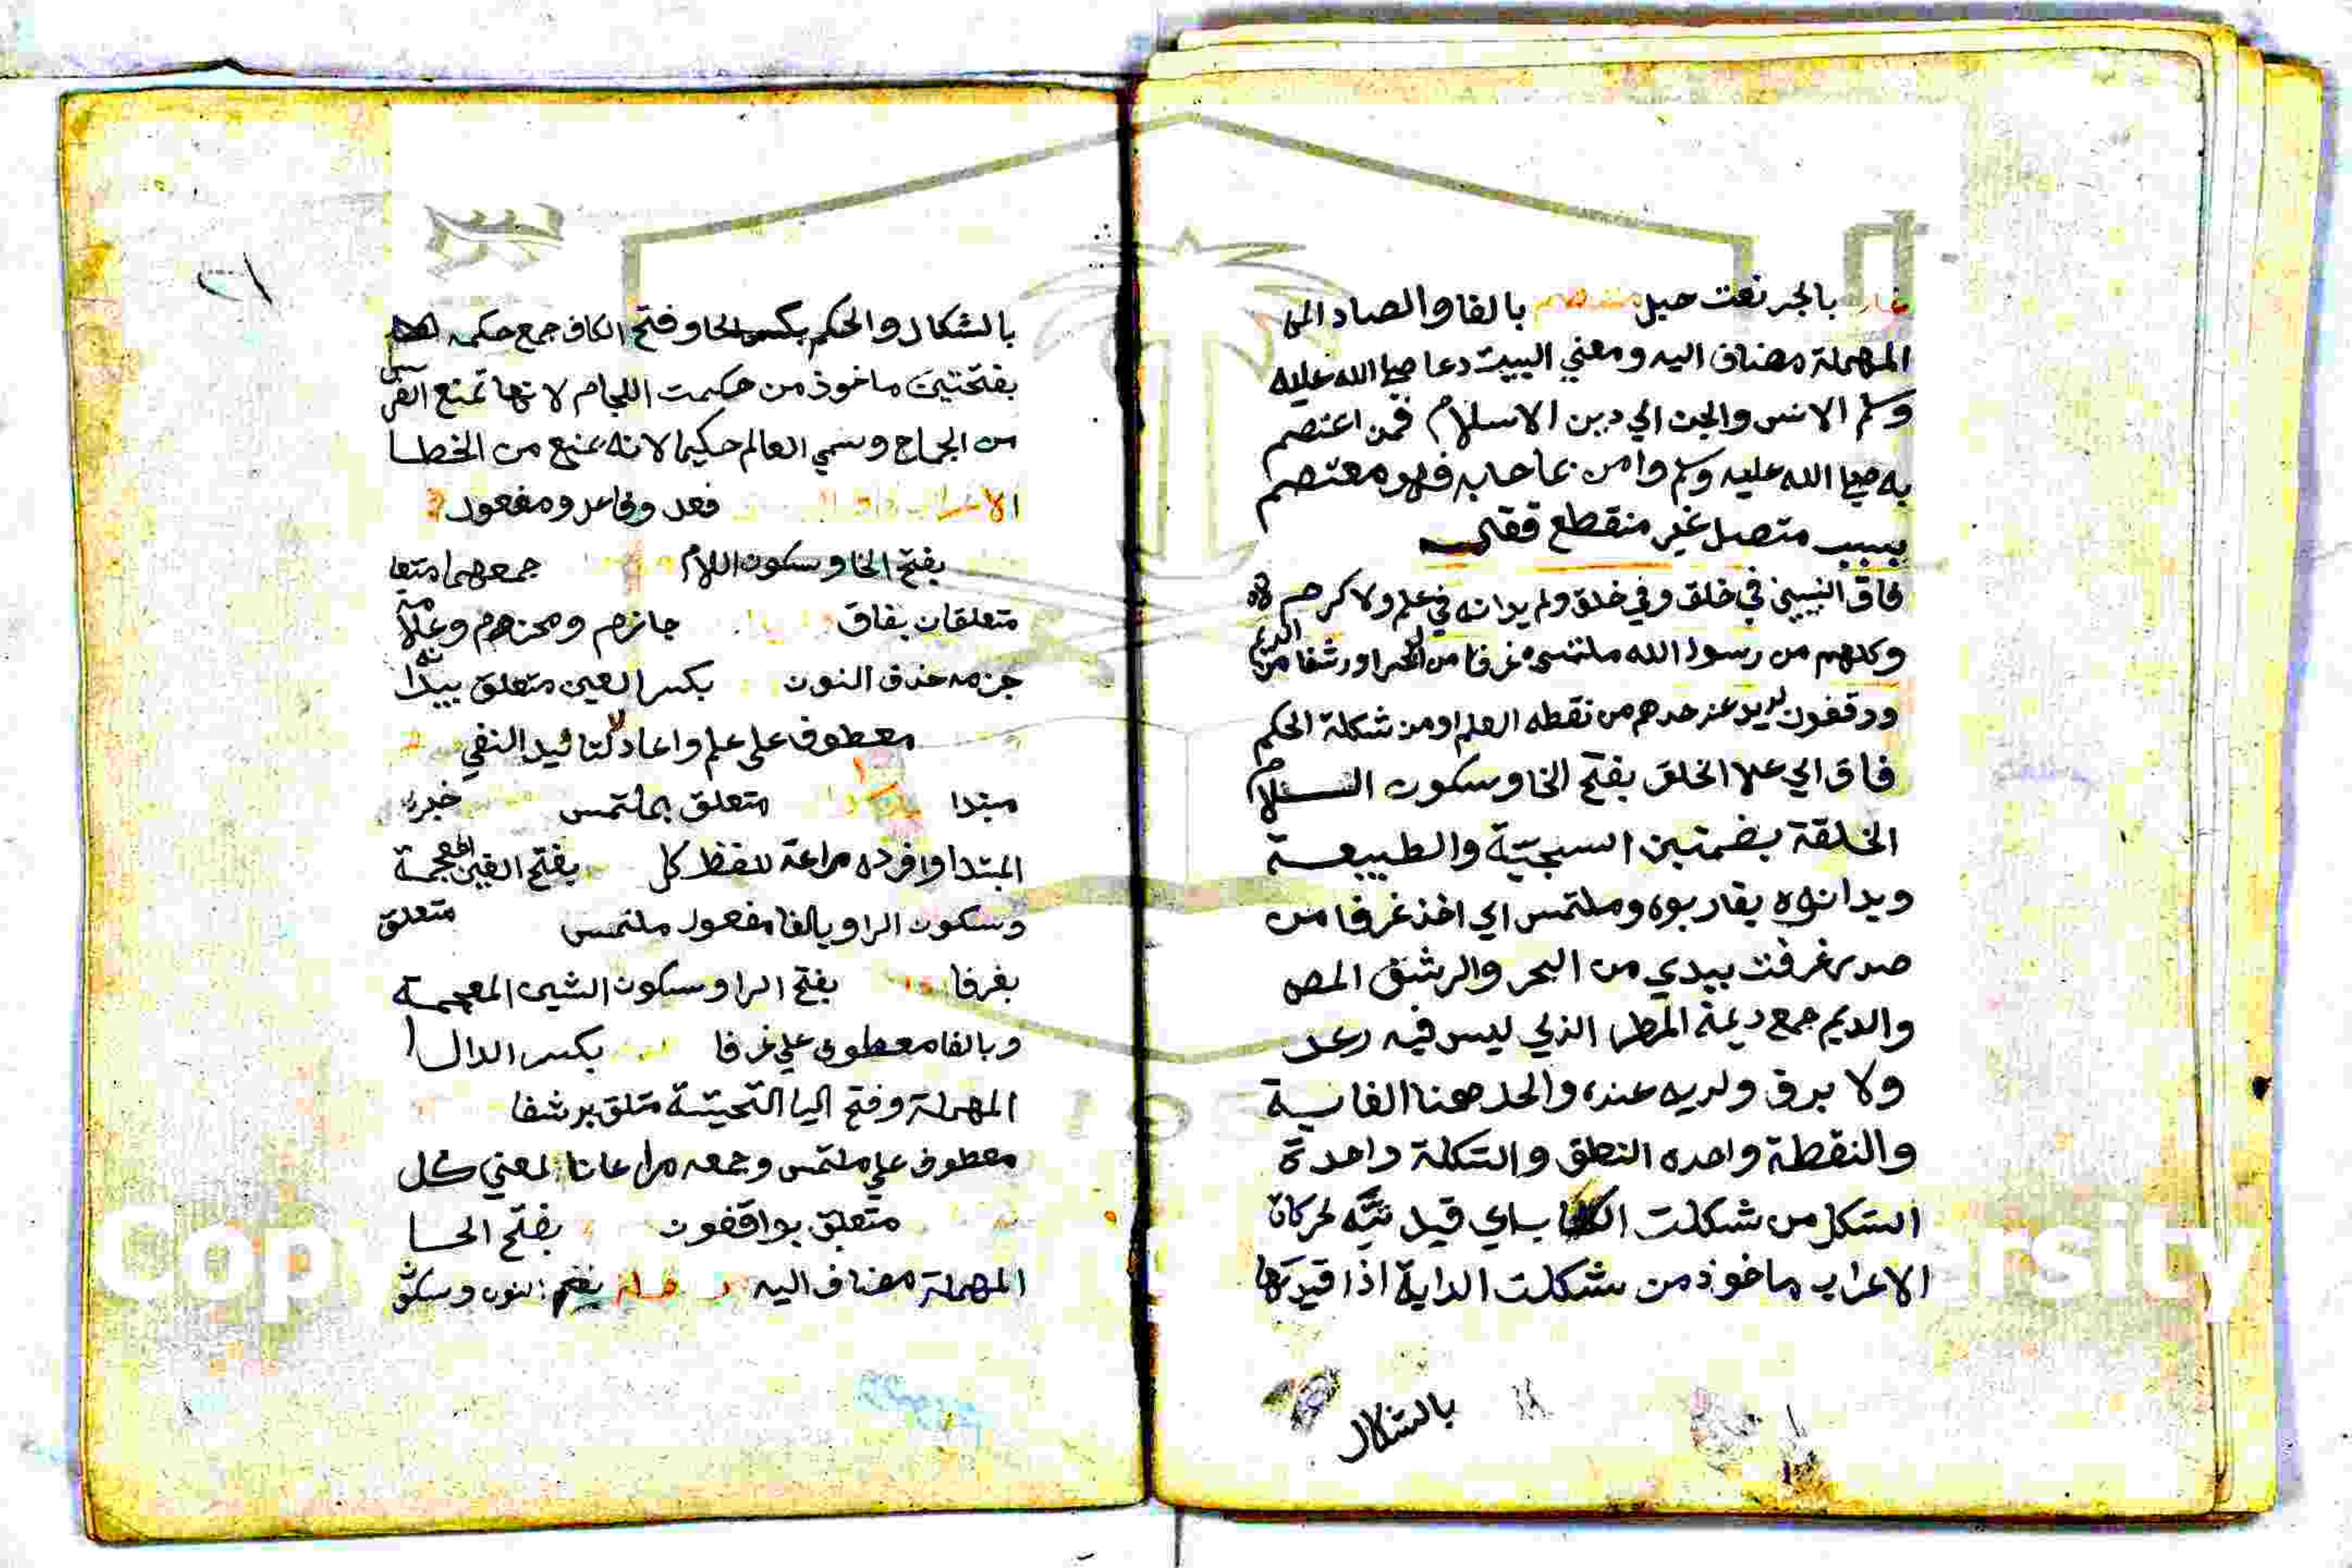 غير بالجر نعت حبل منفصم بالفا والصاد المى
المهملة مضاف اليه ومعني البيت دعا صلي الله عليه
وسلم الانس والجن الي دين الاسلام فمن اعتصم
به صلي الله عليه وسلم وامن بما جا به فهو معتصم
بسبب متصل غير منقطع فقال
فاق النبيين في خلق وفي خلق ولم يدانه في علم ولا كرم
وكلهم من رسول الله ملتمس غرفا من البحر او رشفا من الديم
وواقفون لديه عند حدهم من نقطه العلم او من شكلة الحكم
فاق اي علا الخلق بفتح الخا وسكون اللام
الخلقة بضمتين السجية والطبيعة
ويدانوه يقاربوه وملتمس اي اخذ غرفا من
مصدر غرفت بيدي من البحر والرشف المص
والديم جمع ديمة المطر الذي ليس فيه رعد
ولا برق ولديه عنده والحد هنا الغاية
والنقطة واحده النطق والشكلة واحدة
الشكل من شكلت الكتاب اي قيدته بحركات
الاعراب ماخوذ من شكلت الداية اذا قيدتها
بالشكال
بالشكال والحكم بكسر الحا وفتح الكاف جمع حكمه
بفتحتين ماخوذ من حكمت اللجام لانها تمنع الفرس
من الجماح وسمي العالم حكيما لانه يمنع من الخطا
الاعراب فعل وفاعل ومفعول
بفتح الخا وسكون اللام جمعهما متعا
متعلقان بفاق جازم ومجزوم وعلامة
جزمه حذف النون بكسر العين متعلق بيدانه
معطوف علي علم واعاد لا لتاكيد النفي
مبتدا متعلق بملتمس خبر
المبتدا وافرده مراعة للفظ كل بفتح الغين المعجمة
وسكون الرا وبالفا مفعول ملتمس متعلق
بغرفا بفتح الرا وسكون الشين المعجمة
وبالفا معطوف علي غرفا بكسر الدال
المهملة وفتح اليا التحيتية متلق برشفا
معطوف علي ملتمس وجمعه مراعاتا لمعني كل
متعلق بواقفون بفتح الحا
المهملة مضاف اليه بفتح النون وسكون